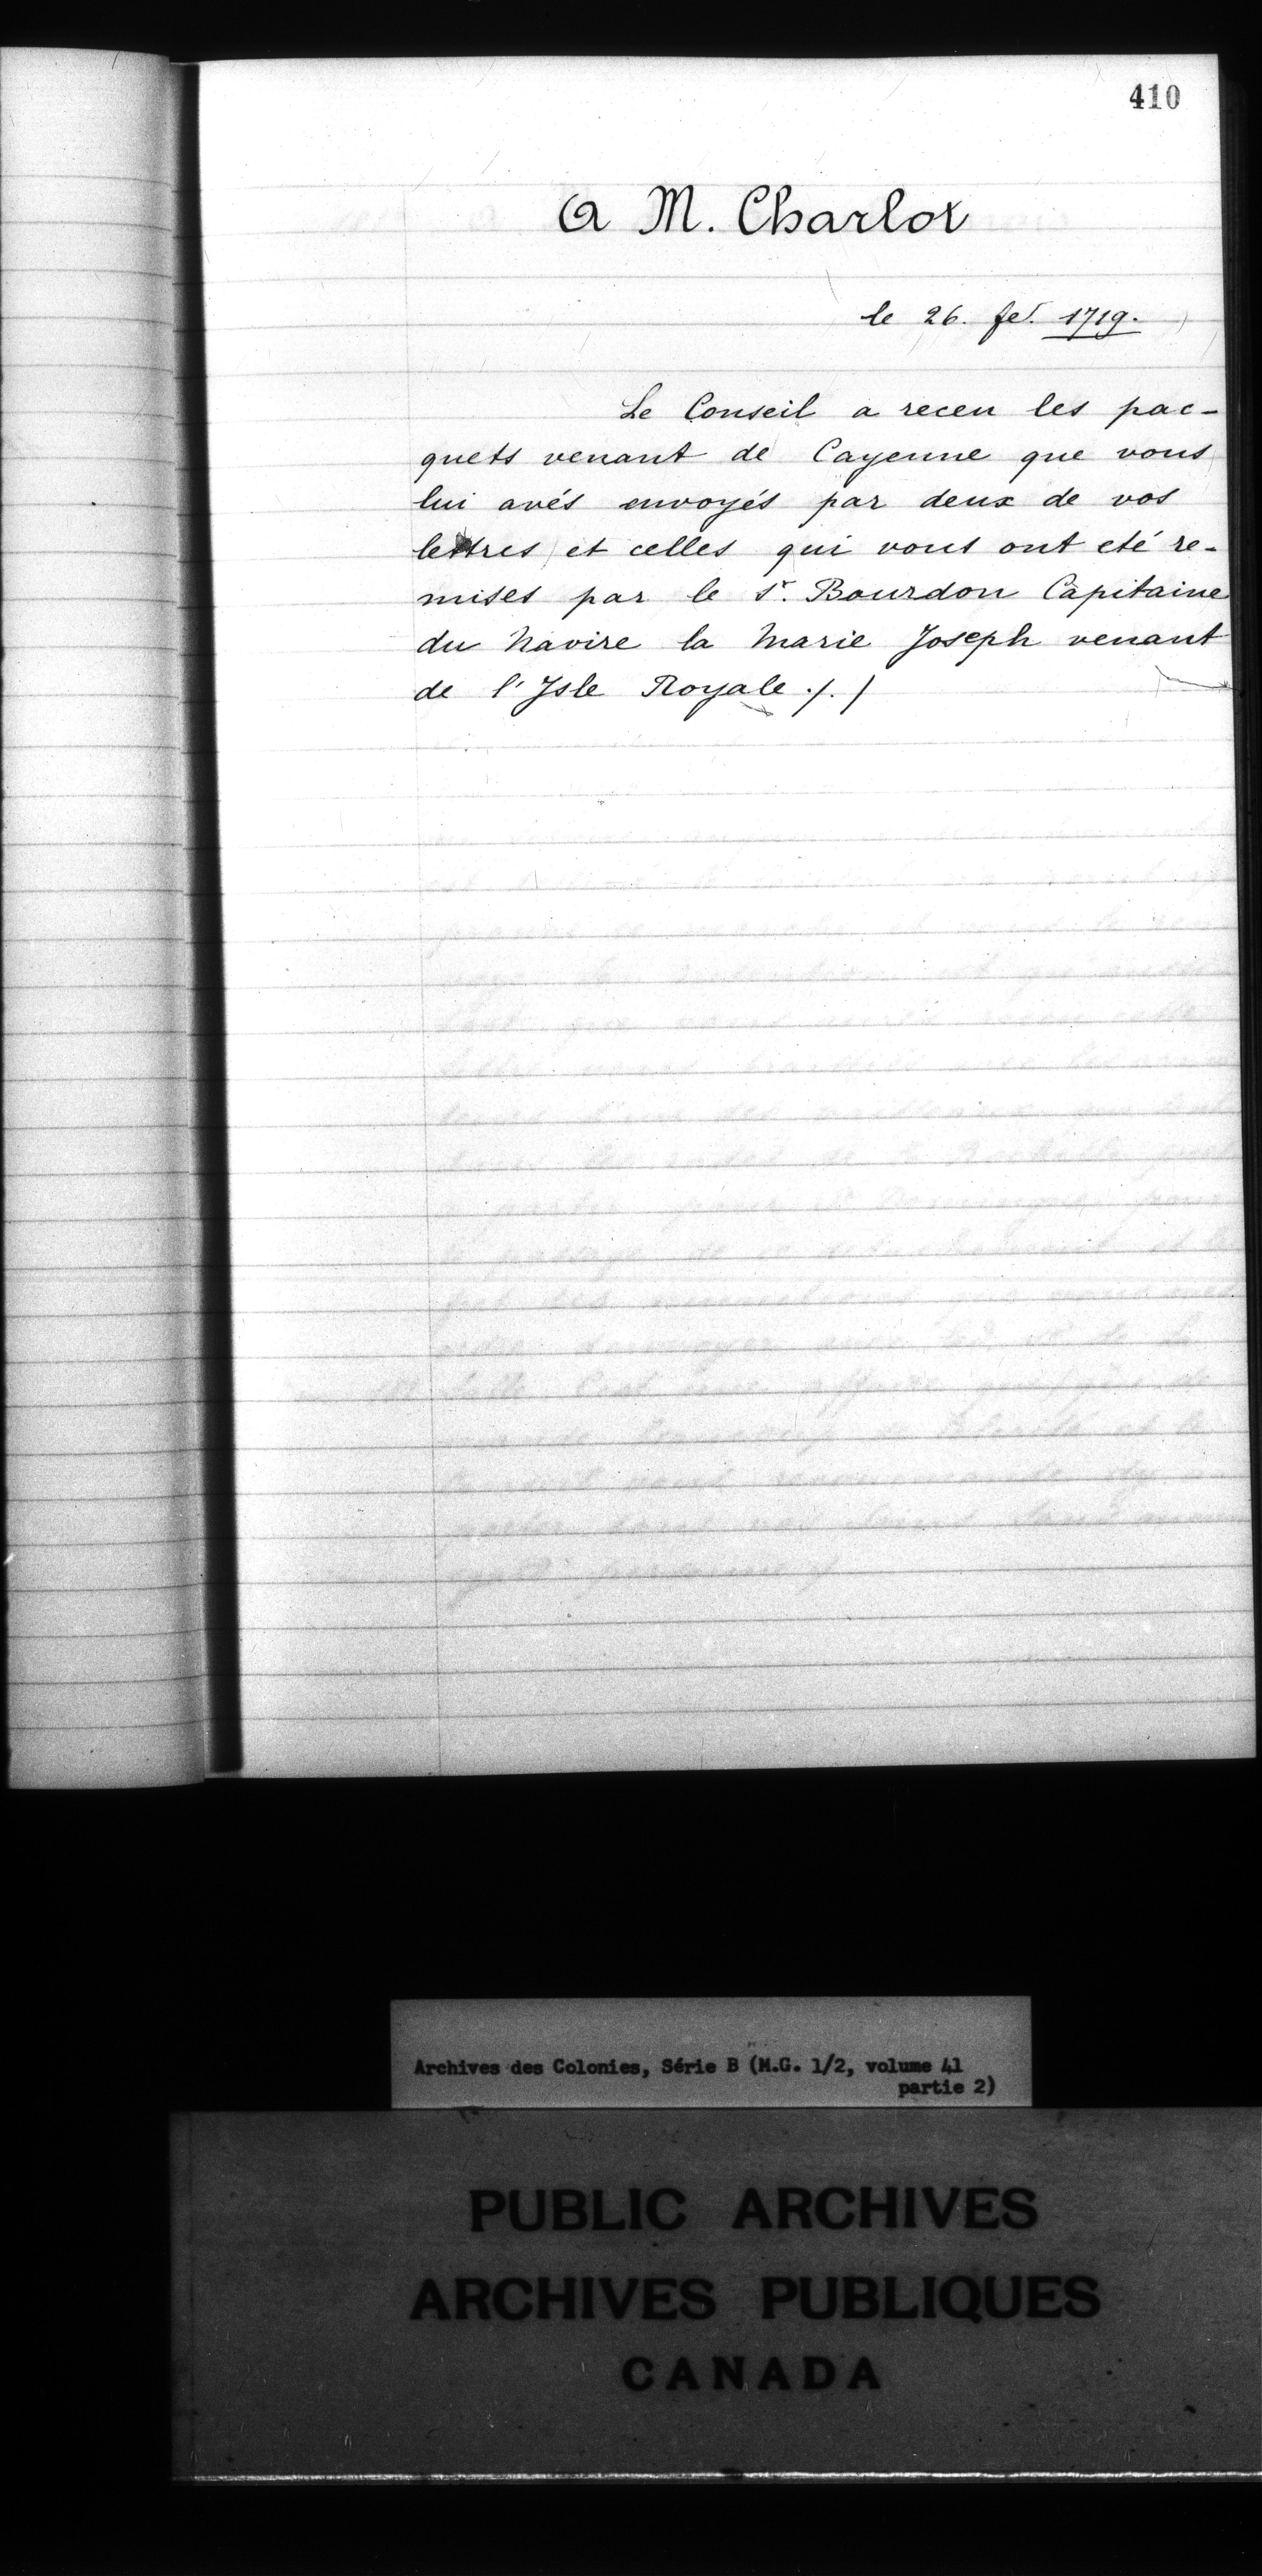 410
A M. Charlot
le 26. fev. 1719.
Le Conseil a receu les pac-
quets venant de Cayenne que vous
lui avés envoyés par deux de vos
lettres et celles qui vous ont eté re-
mises par le Sr. Bourdon Capitaine
du Navire la Marie Joseph venant
de l'Isle Royale ./.
Archives des Colonies, Série B (M.G. 1/2, volume 41
partie 2)
PUBLIC ARCHIVES
ARCHIVES PUBLIQUES
CANADA